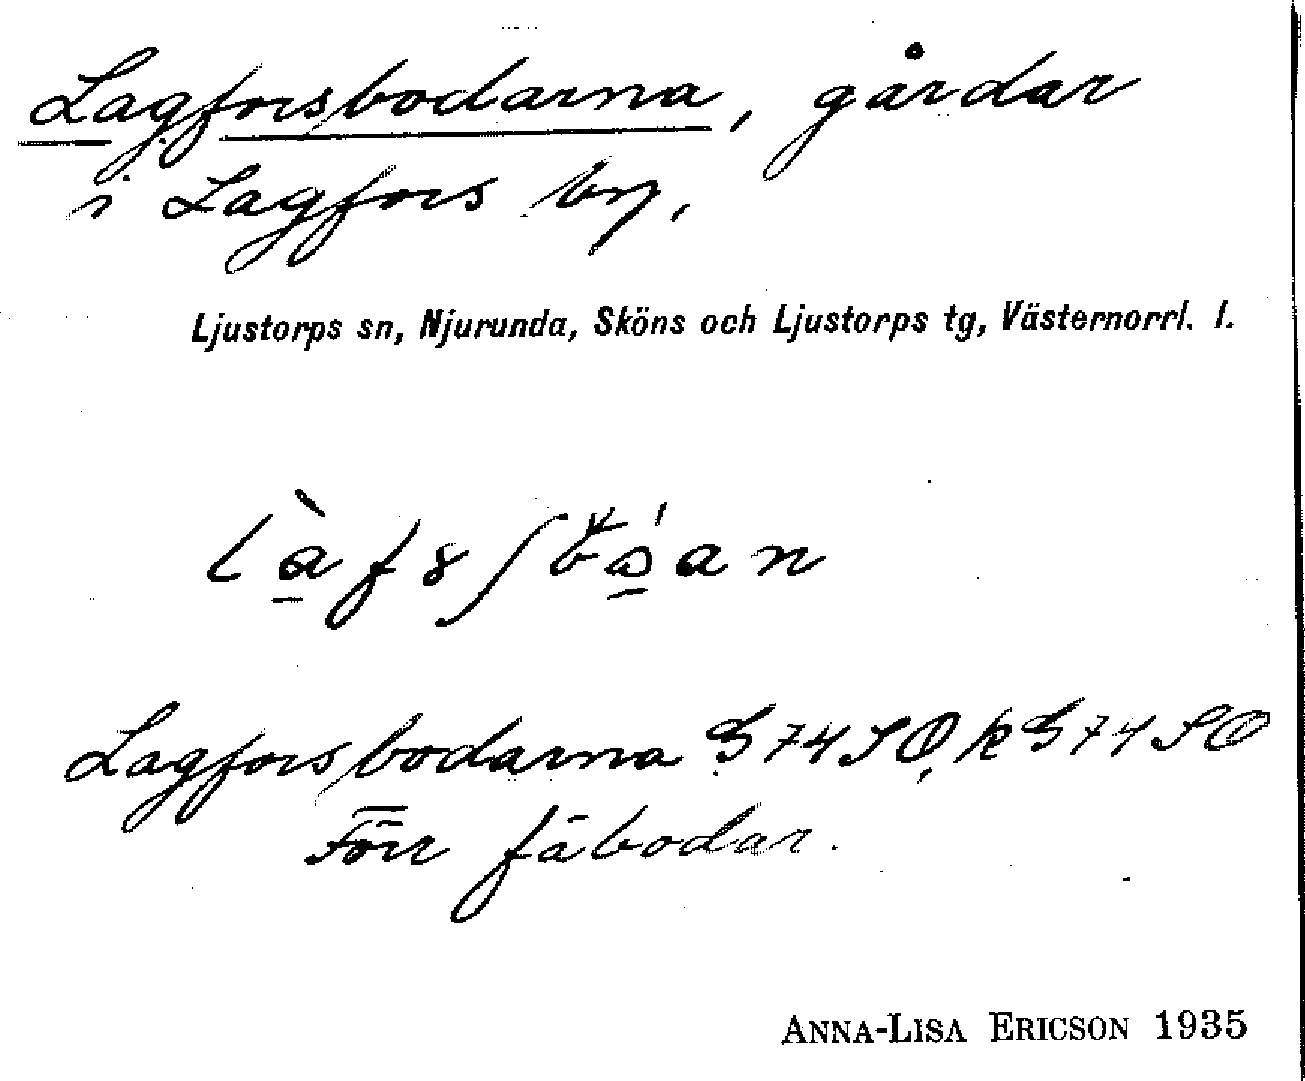 Lagforsbodarna, gårdar
i Lagfors by.
Ljustorps sn, Njurunda, Sköns och Ljustorps tg, Västernorrl. l.
Lagforsbodarna G 74 SO, k G 74 SO
Förr fäbodar.
ANNA-LISA ERICSON 1935